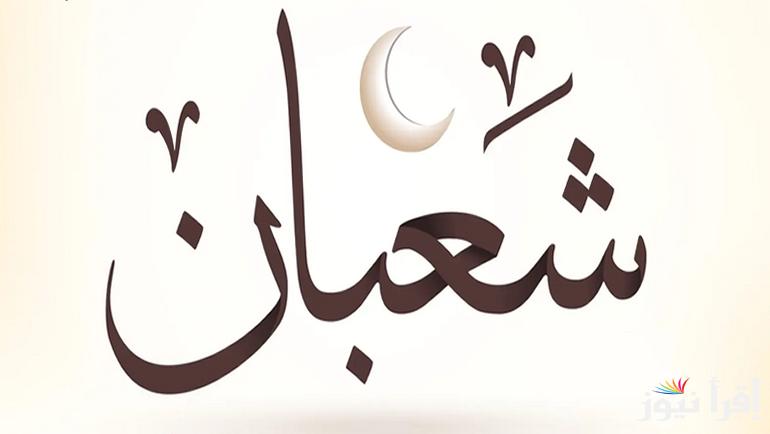 شَعبان
إقرأ نيوز